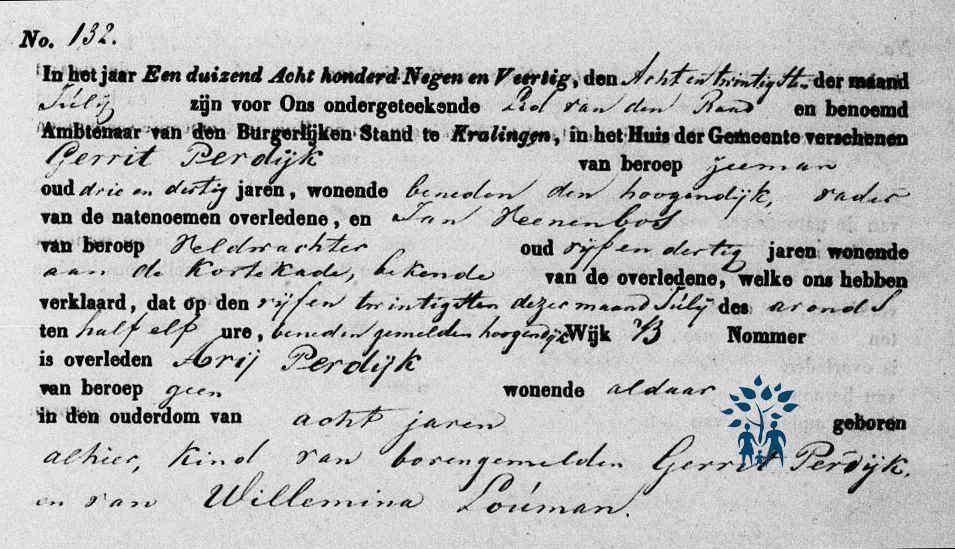 No. 132.
In het jaar Een duizend Acht honderd Negen en Veertig, den Acht en twintigsten der maand
Julij zijn voor Ons ondergeteekende van den en benoemd
Ambtenaar van den Burgerlijken Stand te Kralingen, in het Huis der Gemeente verschenen
Gerrit Perdijk van beroep zeeman
oud drie en dertig jaren, wonende beneden den hoogendijk, vader
van de natenoemen overledene, en Jan Heenenbos
van beroep Veldwachter oud vijf en dertig jaren wonende
aan de Kortekade, bekende van de overledene, welke ons hebben
verklaard, dat op den vijf en twintigsten dezer maand Julij des avonds
ten half elf ure, beneden gemelden hoogendijk Wijk B Nommer
is overleden Arij Perdijk
van beroep geen wonende aldaar
in den ouderdom van acht jaren geboren
alhier, kind van bovengemelden Gerrit Perdijk.
en van Willemina Louman.